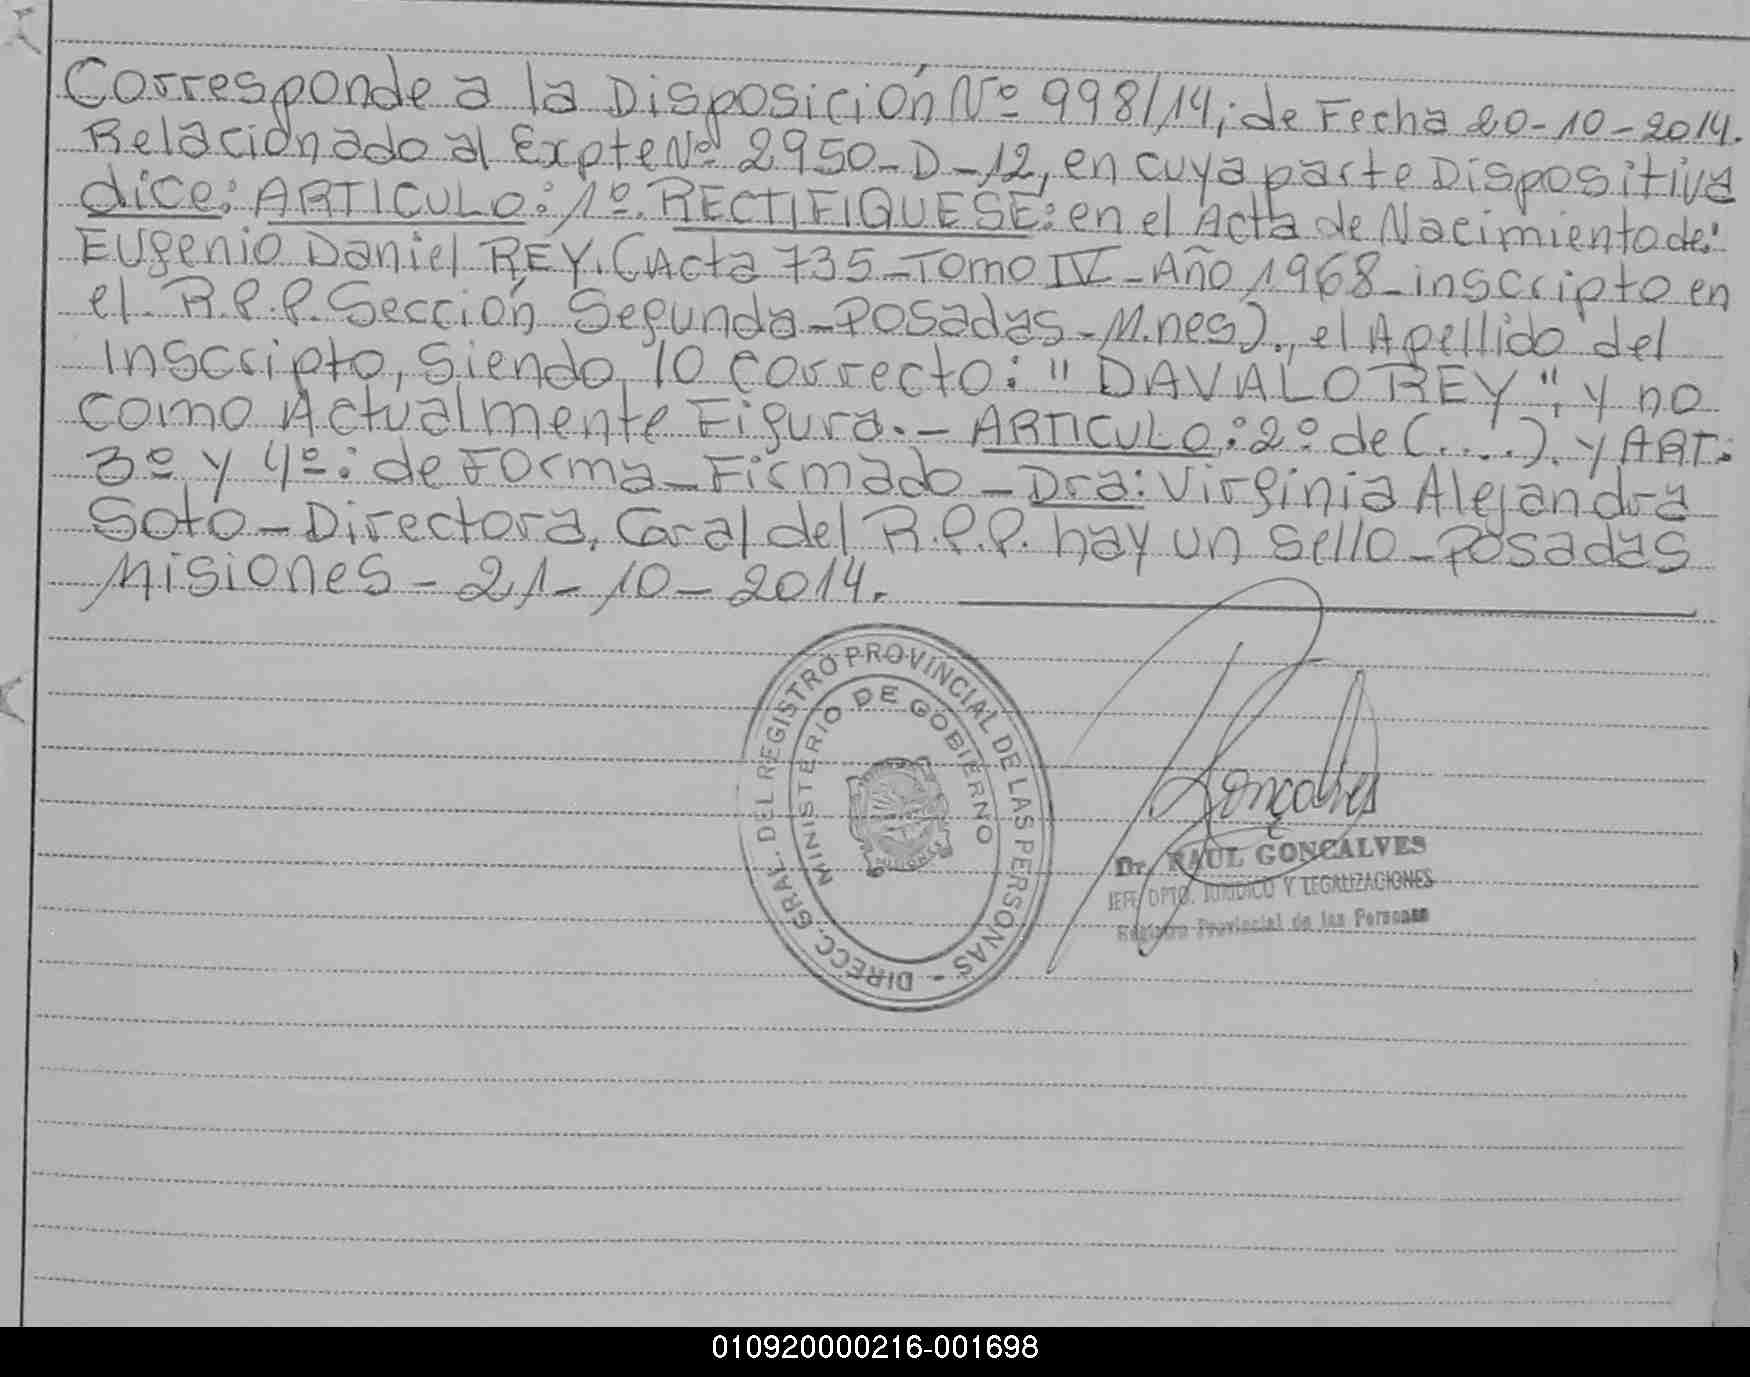 Corresponde a la Disposición Nº 998/14, de Fecha 20-10-2014.
Relacionado al Expte Nº 2950-D-12, en cuya parte Dispositiva
dice: ARTICULO: 1º. RECTIFIQUESE: en el Acta de Nacimiento de:
Eugenio Daniel REY. (Acta 735-Tomo IV-Año 1968-inscripto en
el R.P.P. Sección Segunda-Posadas-M.nes)., el Apellido del
Inscripto, siendo lo correcto: "DAVALO REY", y no
como Actualmente Figura.- ARTICULO: 2º de (....). y ART:
3º y 4º: de Forma-Firmado-Dra: Virginia Alejandra
Soto-Directora, Gral del R.P.P. hay un sello-Posadas
Misiones-21-10-2014.
DIRECC. GRAL. DEL REGISTRO PROVINCIAL DE LAS PERSONAS -
MINISTERIO DE GOBIERNO
MISIONES
Gonçalves
Dr. RAUL GONÇALVES
JEFE DPTO. JURIDICO Y LEGALIZACIONES
Registro Provincial de las Personas
010920000216-001698